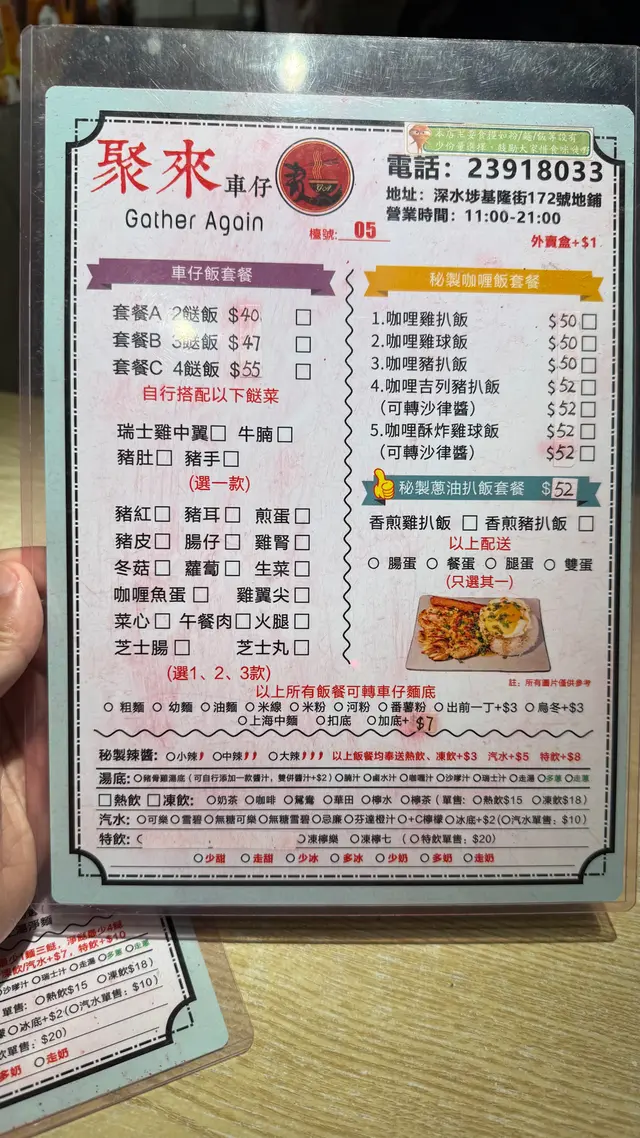 本店主要食程如粉/麵/飯等設有
少份量選擇，鼓勵大家惜食
聚來車仔
Gather Again
電話：23918033
地址：深水埗基隆街172號地鋪
營業時間：11:00-21:00
檯號: 05
外賣盒+$1
車仔飯套餐
套餐A 2餸飯 $40 □
套餐B 3餸飯 $47 □
套餐C 4餸飯 $55 □
自行搭配以下餸菜
瑞士雞中翼□ 牛腩□
豬肚□ 豬手□
(選一款)
豬紅□ 豬耳□ 煎蛋□
豬皮□ 腸仔□ 雞腎□
冬菇□ 蘿蔔□ 生菜□
咖喱魚蛋□ 雞翼尖□
菜心□ 午餐肉□火腿□
芝士腸□ 芝士丸□
(選1、2、3款)
秘製咖喱飯套餐
1.咖哩雞扒飯 $50□
2.咖哩雞球飯 $50□
3.咖哩豬扒飯 $50□
4.咖哩吉列豬扒飯 $52□
（可轉沙律醬） $52□
5.咖哩酥炸雞球飯 $52□
（可轉沙律醬） $52□
秘製蔥油扒飯套餐 $52
香煎雞扒飯 □ 香煎豬扒飯 □
以上配送
○ 腸蛋 ○ 餐蛋 ○ 腿蛋 ○ 雙蛋
(只選其一)
註：所有圖片僅供參考
以上所有飯餐可轉車仔麵底
○ 粗麵 ○ 幼麵 ○油麵 ○米線 ○米粉 ○河粉 ○番薯粉 ○出前一丁+$3 ○烏冬+$3
○上海中麵 ○扣底 ○加底+ $7
秘製辣醬：○小辣 ○中辣 ○大辣 以上飯餐均奉送熱飲、凍飲+$3 汽水+$5 特飲+$8
湯底：○豬骨雞湯底（可自行添加一款醬汁，雙併醬汁+$2）○腩汁○鹵水汁○咖喱汁○沙嗲汁○瑞士汁○走湯○多蔥○走蔥
□熱飲 □凍飲：○奶茶 ○咖啡 ○鴛鴦 ○華田 ○檸水 ○檸茶（單售：○熱飲$15 ○凍飲$18）
汽水：○可樂○雪碧○無糖可樂○無糖雪碧○忌廉○芬達橙汁○+C檸檬○冰底+$2(○汽水單售：$10)
特飲： ○凍檸樂 ○凍檸七 （○特飲單售：$20）
○少甜 ○走甜 ○少冰 ○多冰 ○少奶 ○多奶 ○走奶
麵三餸，淨餸最少4餸
飲/汽水+$7，特飲+$10
沙嗲汁○瑞士汁○走湯○多蔥○走蔥
單售：○熱飲$15 ○凍飲$18）
○冰底+$2(○汽水單售：$10)
飲單售：$20）
多奶 ○走奶